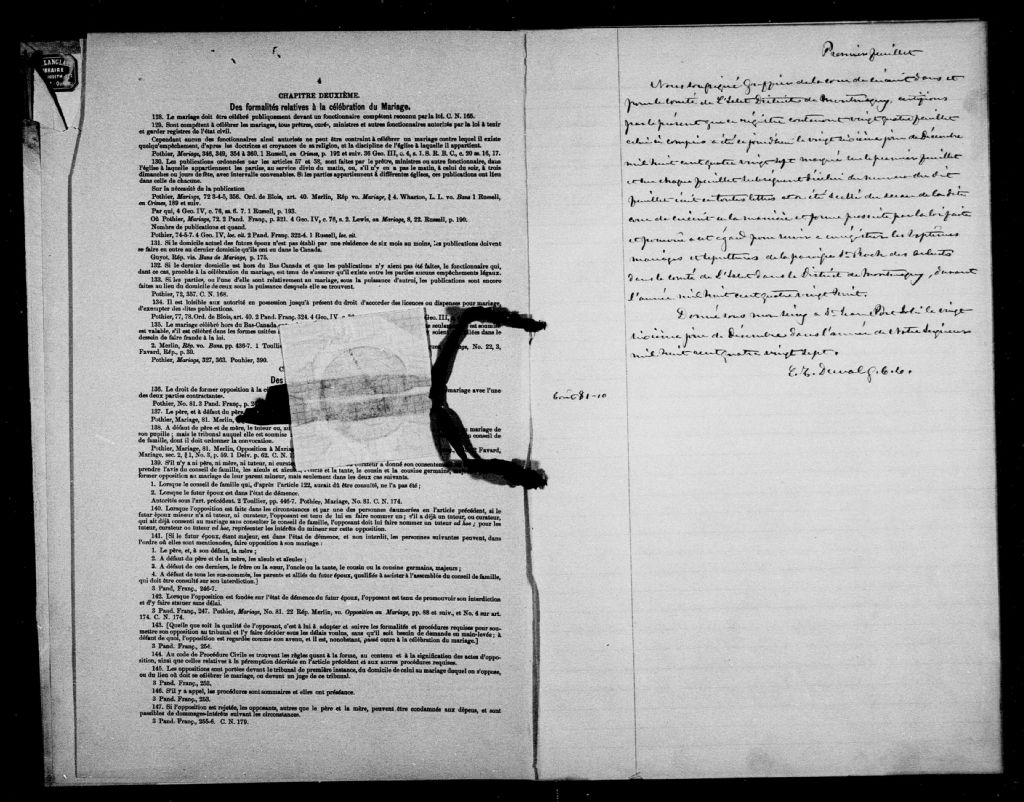 LANGLAIS
LIBRAIRE
4
CHAPITRE DEUXIÈME.
Des formalités relatives à la célébration du Mariage.
128. Le mariage doit être célébré publiquement devant un fonctionnaire compétent reconnu par la loi. C. N. 165.
129. Sont compétents à célébrer les mariages, tous prêtres, curés, ministres et autres fonctionnaires autorisés par la loi à tenir
et garder registres de l'état civil.
Cependant aucun des fonctionnaires ainsi autorisés ne peut être contraint à célébrer un mariage contre lequel il existe
quelqu'empêchement, d'après les doctrines et croyances de sa religion, et la discipline de l'église à laquelle il appartient.
Pothier, Mariage, 346, 349, 354 à 360. 1 Russell, on Crimes, p. 192 et suiv. 36 Geo. III, c. 4, s. 1. S. R. B. C., c. 20 ss. 16, 17.
130. Les publications ordonnées par les articles 57 et 58, sont faites par le prêtre, ministre ou autre fonctionnaire, dans
l'église à laquelle appartiennent les parties, au service divin du matin, ou, s'il n'y en a pas le matin, à celui du soir, à trois
dimanches ou jours de fête, avec intervalle convenables. Si les parties appartiennent à différentes églises, ces publications ont lieu
dans celle de chacune.
Sur la nécessité de la publication
Pothier, Mariage, 72 3-4-5, 356. Ord. de Blois, art. 40. Merlin, Rép vo. Mariage, § 4. Wharton, L. L. vo. Bans 1 Russell,
on Crimes, 189 et suiv.
Par qui, 4 Geo. IV, c. 76, ss. 6. 7. 1 Russell, p. 193.
Où Pothier, Mariage, 72. 2 Pand. Franç., p. 321. 4 Geo. IV, c. 76, s. 2. Lewis, on Mariage, 8, 22. Russell, p. 190.
Nombre de publications et quand.
Pothier, 74-5-7. 4 Geo. IV, loc. cit. 2 Pand. Franç. 322-4. 1 Russell, loc. cit.
131. Si le domicile actuel des futurs époux n'est pas établi par une résidence de six mois au moins, les publications doivent
se faire en outre au dernier domicile qu'ils ont eu dans le Canada.
Guyot, Rép. vis. Bans de Mariage, p. 175.
132. Si le dernier domicile est hors du Bas Canada et que les publications n'y aient pas été faites, le fonctionnaire qui,
dans ce cas, procède à la célébration du mariage, est tenu de s'assurer qu'il existe entre les parties aucuns empêchements légaux.
133. Si les parties, ou l'une d'elles, sont relativement au mariage, sous la puissance d'autrui, les publications sont encore
faites au lieu du domicile de ceux sous la puissance desquels elle se trouvent.
Pothier, 72, 357. C. N. 168.
134. Il est loisible aux autorité en possession jusqu'à présent du droit d'accorder des licences ou dispenses pour mariage,
d'exempter des dites publications.
Pothier, 77, 78. Ord. de Blois, art. 40. 2 Pand. Franç. 324. 4 Geo. IV, c. Geo. III,
135. Le mariage célébré hors du Bas-Canada
est valable, s'il est célébré dans les formes usitées dans le
dessein de faire fraude à la loi.
2. Merlin, Rép. vo. Bans, pp. 436-7. 1 Toullier No. 22, 3,
Favard, Rép., p. 30.
Pothier, Mariage, 327, 363. Pouhier, 390.
Des
136. Le droit de former opposition à la mariage avec l'une
des deux parties contractantes.
Pothier, No. 81. 2 Pand. Franç., p.
137. Le père, et à défaut du père
Pothier, Mariage, 81. Merlin,
138. A défaut de père et de mère, le tuteur ou, au mariage de
son pupille ; mais le tribunal auquel elle est soumise conseil
de famille, dont il doit ordonner la convocation.
Pothier, Mariage, 81. Merlin, Opposition à Mariage Favard,
Mariage, sec. 2, § 1, No. 3, p. 59. 1 Delv. p. 62. C. N.
139. S'il n'y a ni père, ni mère, ni tuteur, ni curateur curateur a donné son consentement
prendre l'avis du conseil de famille, les aïeuls et aïeules, l'oncle et la tante, le cousin et la cousine germains
former opposition au mariage de leur parent mineur, mais seulement dans les deux cas suivants.
1. Lorsque le conseil de famille qui, d'après l'article 122, aurait dû être consulté, ne l'a pas été ;
2. Lorsque le futur époux est dans l'état de démence.
Autorités sous l'art. précédent. 2 Toullier, pp. 446-7. Pothier, Mariage, No. 81. C. N. 174.
140. Lorsque l'opposition est faite dans les circonstances et par une des personnes énumérées en l'article précédent, si le
futur époux mineur n'a ni tuteur, ni curateur, l'opposant est tenu de lui en faire nommer un ; s'il a déjà un tuteur, ou curateur,
qui ait déjà consenti au mariage sans consulter le conseil de famille, l'opposant doit lui faire nommer un tuteur ad hoc ; pour les
tuteur, curateur ou tuteur ad hoc, représenter les intérêts du mineur sur cette opposition.
141. [Si le futur époux, étant majeur, est dans l'état de démence, et non interdit, les personnes suivantes peuvent, dans
l'ordre où elles sont mentionnées, faire opposition à son mariage :
1. Le père, et, à son défaut, la mère ;
2. A défaut du père et de la mère, les aïeuls et aïeules ;
3. A défaut de ces derniers, le frère ou la sœur, l'oncle ou la tante, le cousin ou la cousine germains, majeurs ;
4. A défaut de tous les sus-nommés, les parents et alliés du futur époux, qualifiés à assister à l'assemblée du conseil de famille,
qui doit être consulté sur son interdiction.]
3 Pand. Franç., 246-7.
142. Lorsque l'opposition est fondée sur l'état de démence du futur époux, l'opposant est tenu de promouvoir son interdiction
et d'y faire statuer sans délai.
3 Pand. Franç., 247. Pothier, Mariage, No. 81. 22 Rép. Merlin, vo. Opposition au Mariage, pp. 88 et suiv., et No. 4 sur art.
174. C. N. 174.
143. [Quelle que soit la qualité de l'opposant, c'est à lui à adopter et suivre les formalités et procédures requises pour sou-
mettre son opposition au tribunal et l'y faire décider sous les délais voulus, sans qu'il soit besoin de demande en main-levée ; à
défaut de quoi, l'opposition est regardée comme non avenu, et il est, nonobstant, passé outre à la célébration du mariage.]
3 Pand. Franç., 254.
144. Au code de Procédure Civile se trouvent les règles quant à la forme, au contenu et à la signification des actes d'oppo-
sition, ainsi que celles relatives à la péremption décrétée en l'article précédent et aux autres procédures requises.
145. Les oppositions sont portées devant le tribunal de première instance, du domicile de celui au mariage duquel on s'oppose,
ou du lieu où doit se célébrer le mariage, ou devant un juge de ce tribunal.
3 Pand. Franç., 253.
146. S'il y a appel, les procédures sont sommaires et elles ont préséance.
3 Pand. Franç., 253.
147. Si l'opposition est rejetée, les opposants, autres que le père et la mère, peuvent être condamnés aux dépens, et sont
passibles de dommages-intérêts suivant les circonstances.
3 Pand. Franç., 255-6. C. N. 179.
Premier feuillet
Nous soussigné Greffier de la cour de circuit dans et
pour le comté de L'Islet District de Montmagny, certifions
par le présent que ce registre contenant vingt quatre feuillets
celui ci compris a été ce jourd'hui le vingt sixième jour de Décembre
mil huit cent quatre vingt sept marqué sur le premier feuillet
et sur chaque feuillet subséquent d'icelui du numéro du dit
feuillet écrit en toutes lettres et a été scellé du sceau de la dite
cour de circuit en la manière et forme prescrite par la loi faite
et pourvue à cet égard pour servir à enregistrer les baptêmes
mariages et sépultures de la paroisse St Roch des Aulnets
dans le comté de L'Islet dans le District de Montmagny, durant
l'année mil huit cent quatre vingt huit.
Donné sous mon seing à St Jean Port Joli le vingt
sixième jour de Décembre dans l'année de Notre Seigneur
mil huit cent quatre vingt sept.
Coût $1-10